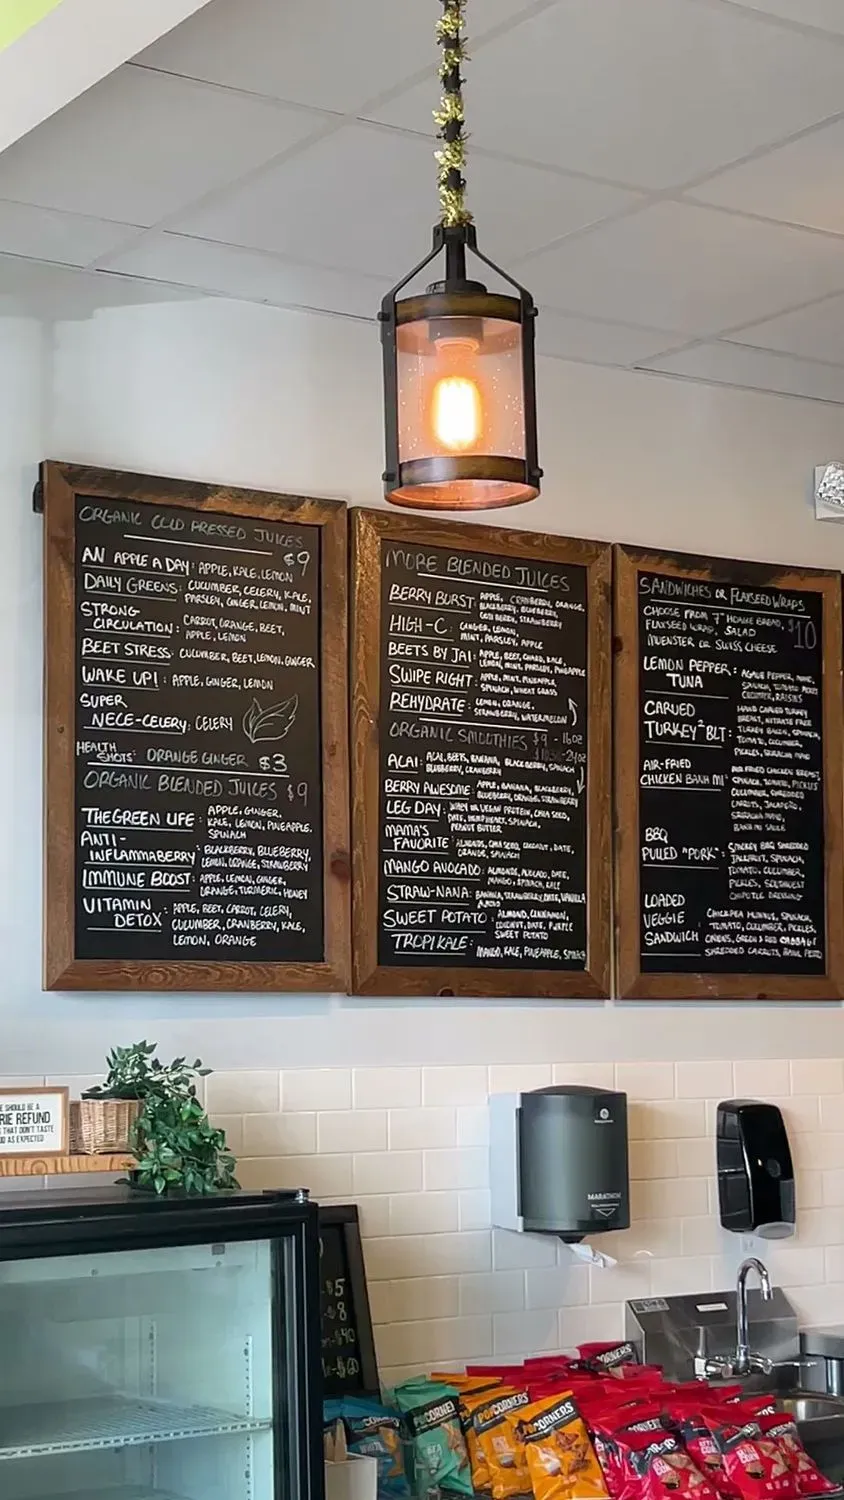 ORGANIC COLD PRESSED JUICES
$9
AN APPLE A DAY: APPLE, KALE, LEMON
DAILY GREENS: CUCUMBER, CELERY, KALE,
PARSLEY, GINGER, LEMON, MINT
STRONG
CIRCULATION: CARROT, ORANGE, BEET,
APPLE, LEMON
BEET STRESS: CUCUMBER, BEET, LEMON, GINGER
WAKE UP!: APPLE, GINGER, LEMON
SUPER
NECE-CELERY: CELERY
HEALTH
SHOTS: ORANGE GINGER $3
ORGANIC BLENDED JUICES $9
THE GREEN LIFE: APPLE, GINGER,
KALE, LEMON, PINEAPPLE,
SPINACH
ANTI-
INFLAMMABERRY: BLACKBERRY, BLUEBERRY,
LEMON, ORANGE, STRAWBERRY
IMMUNE BOOST: APPLE, LEMON, GINGER,
ORANGE, TURMERIC, HONEY
VITAMIN
DETOX: APPLE, BEET, CARROT, CELERY,
CUCUMBER, CRANBERRY, KALE,
LEMON, ORANGE
MORE BLENDED JUICES
BERRY BURST: APPLE, CRANBERRY, ORANGE,
BLACKBERRY, BLUEBERRY,
GOJI BERRY, STRAWBERRY
HIGH-C: GINGER, LEMON,
MINT, PARSLEY, APPLE
BEETS BY JAI: APPLE, BEET, CHARD, KALE,
LEMON, MINT, PARSLEY, PINEAPPLE
SWIPE RIGHT: APPLE, MINT, PINEAPPLE,
SPINACH, WHEAT GRASS
REHYDRATE: LEMON, ORANGE,
STRAWBERRY, WATERMELON
ORGANIC SMOOTHIES $9 - 16OZ
24OZ
ACAI: ACAI, BEETS, BANANA, BLACKBERRY, SPINACH,
BLUEBERRY, CRANBERRY
BERRY AWESOME: APPLE, BANANA, BLACKBERRY,
BLUEBERRY, ORANGE, STRAWBERRY
LEG DAY: WHEY OR VEGAN PROTEIN, CHIA SEED,
DATE, HEMPHEART, SPINACH,
PEANUT BUTTER
MAMA'S
FAVORITE: ALMONDS, CHIA SEED, COCONUT, DATE,
ORANGE, SPINACH
MANGO AVOCADO: ALMONDS, AVOCADO, DATE,
MANGO, SPINACH, KALE
STRAW-NANA: BANANA, STRAWBERRY, DATE, VANILLA
ALMOND
SWEET POTATO: ALMOND, CINNAMON,
COCONUT, DATE, PURPLE
SWEET POTATO
TROPIKALE: MANGO, KALE, PINEAPPLE, SPINACH
SANDWICHES OR FLAXSEED WRAPS
CHOOSE FROM 7" HOAGIE BREAD,
FLAXSEED WRAP, SALAD
MUENSTER OR SWISS CHEESE
$10
LEMON PEPPER
TUNA: AGAVE PEPPER,
SPINACH, TOMATO,
CUCUMBER, RAISINS
CARVED
TURKEY² BLT: HAND CARVED TURKEY
BREAST, NITRATE FREE
TURKEY BACON, SPINACH,
TOMATO, CUCUMBER,
PICKLES, SRIRACHA MAYO
AIR-FRIED
CHICKEN BANH MI: AIR FRIED CHICKEN BREAST,
SPINACH, TOMATO, PICKLES
CUCUMBER, SHREDDED
CARROTS, JALAPEÑO,
SRIRACHA MAYO,
BANH MI SAUCE
BBQ
PULLED "PORK": SMOKEY BBQ SHREDDED
JACKFRUIT, SPINACH,
TOMATO, CUCUMBER,
PICKLES, SOUTHWEST
CHIPOTLE DRESSING
LOADED
VEGGIE
SANDWICH: CHICKPEA HUMMUS, SPINACH,
TOMATO, CUCUMBER, PICKLES,
ONIONS, GREEN & RED CABBAGE
SHREDDED CARROTS, BASIL PESTO
E SHOULD BE A
RIE REFUND
THAT DON'T TASTE
D AS EXPECTED
MARATHON
$5
8
POPCORNERS
POPCORNERS
CORNERS
CORNERS